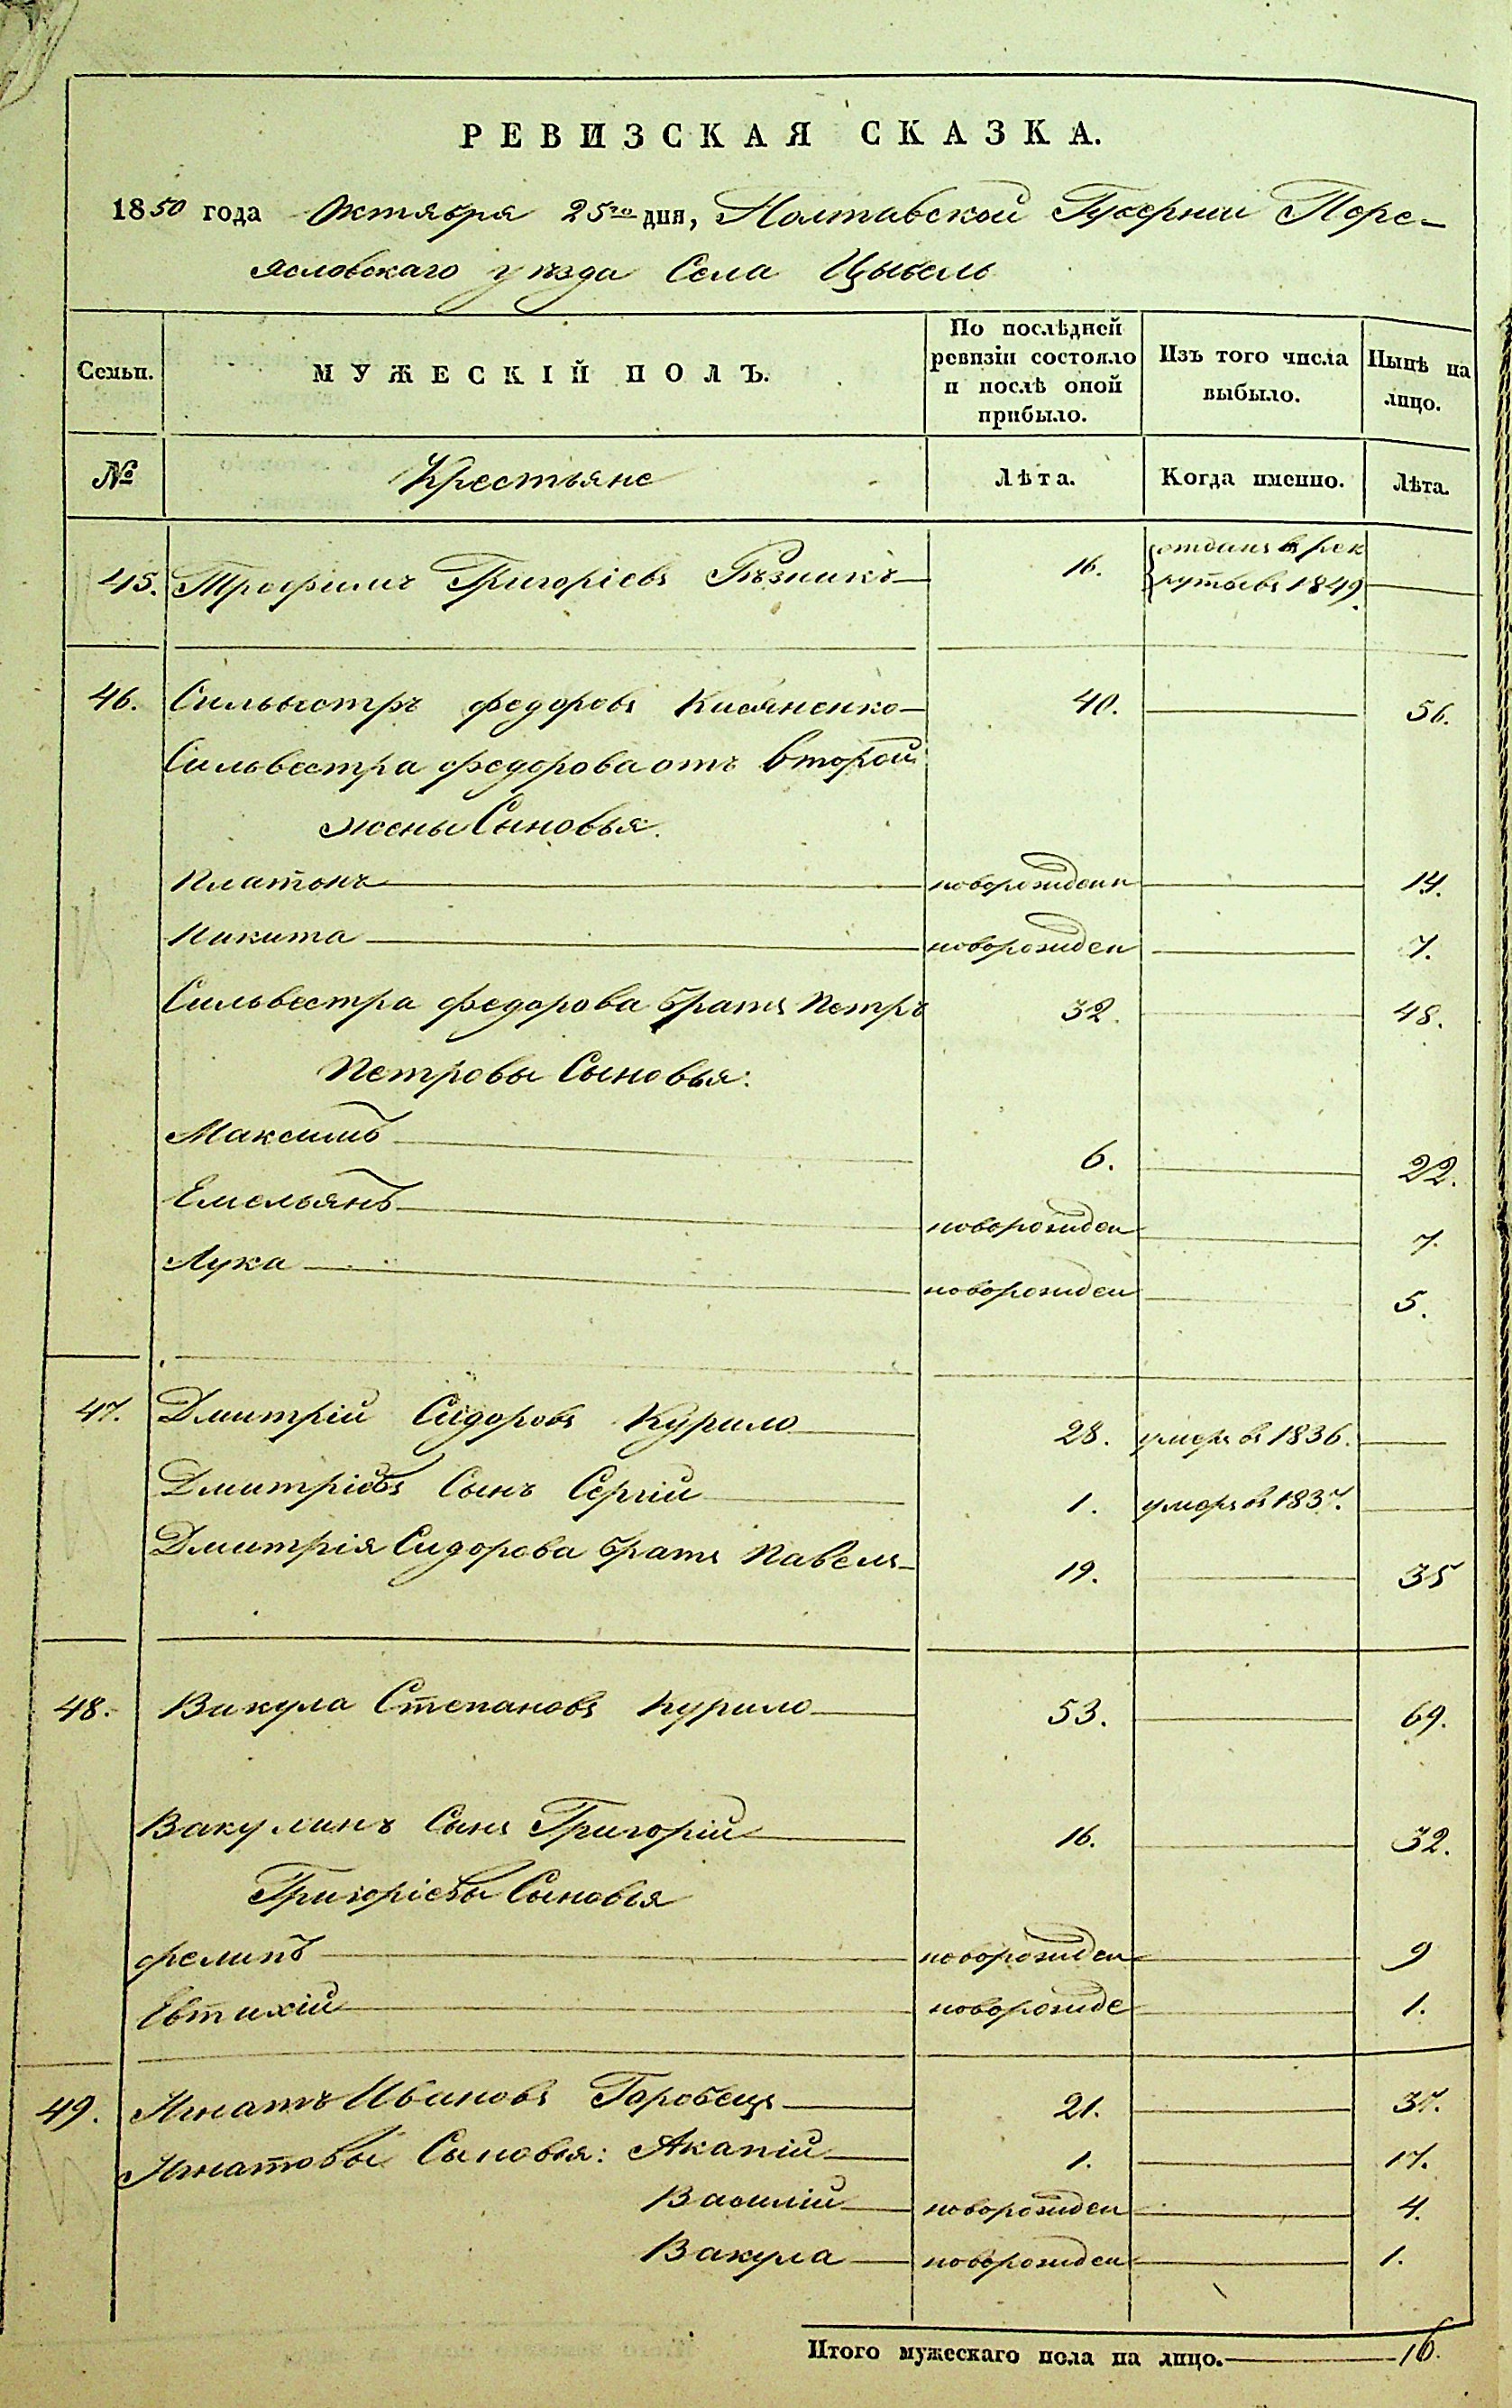 РЕВИЗСКАЯ СКАЗКА.
1850 года Октября 25го дня, Полтавской Губернии Пере-
яславскаго уезда Села Цыбель
Семьи. МУЖЕСКІЙ ПОЛЪ. По послѣдней ревизіи состояло и послѣ оной прибыло. Изъ того числа выбыло. Нынѣ на лицо.
№ Крестьяне Лѣта. Когда именно. Лѣта.
45. Трофимъ Григоріевъ Рѣзникъ 16. отданъ въ рек
рутывъ 1849.
46. Сильвестръ федоровъ Касяненко 40. 56.
Сильвестра федорова отъ второй
жены Сыновья.
Платонъ новорожденн 14.
Никита новорожден 7.
Сильвестра федорова братъ Петръ 32. 48.
Петровы Сыновья:
Максимъ 6. 22.
Емельянъ новорожден 7.
Лука новорожден 5.
47. Дмитрій Сидоровъ Курило 28. умеръ въ 1836.
Дмитріевъ Сынъ Сергій 1. умеръ въ 1837.
Дмитрія Сидорова братъ Павелъ 19. 35
48. Вакула Степановъ Курило 53. 69.
Вакулинъ Сынъ Григорій 16. 32.
Григоріевы Сыновья
филипъ новорожден 9
Евтихій новорожде 1.
49. Игнатъ Ивановъ Горобець 21. 37.
Игнатовы Сыновья: Акапій 1. 17.
Василій новорожден 4.
Вакула новорожден 1.
Итого мужескаго пола на лицо. 16.